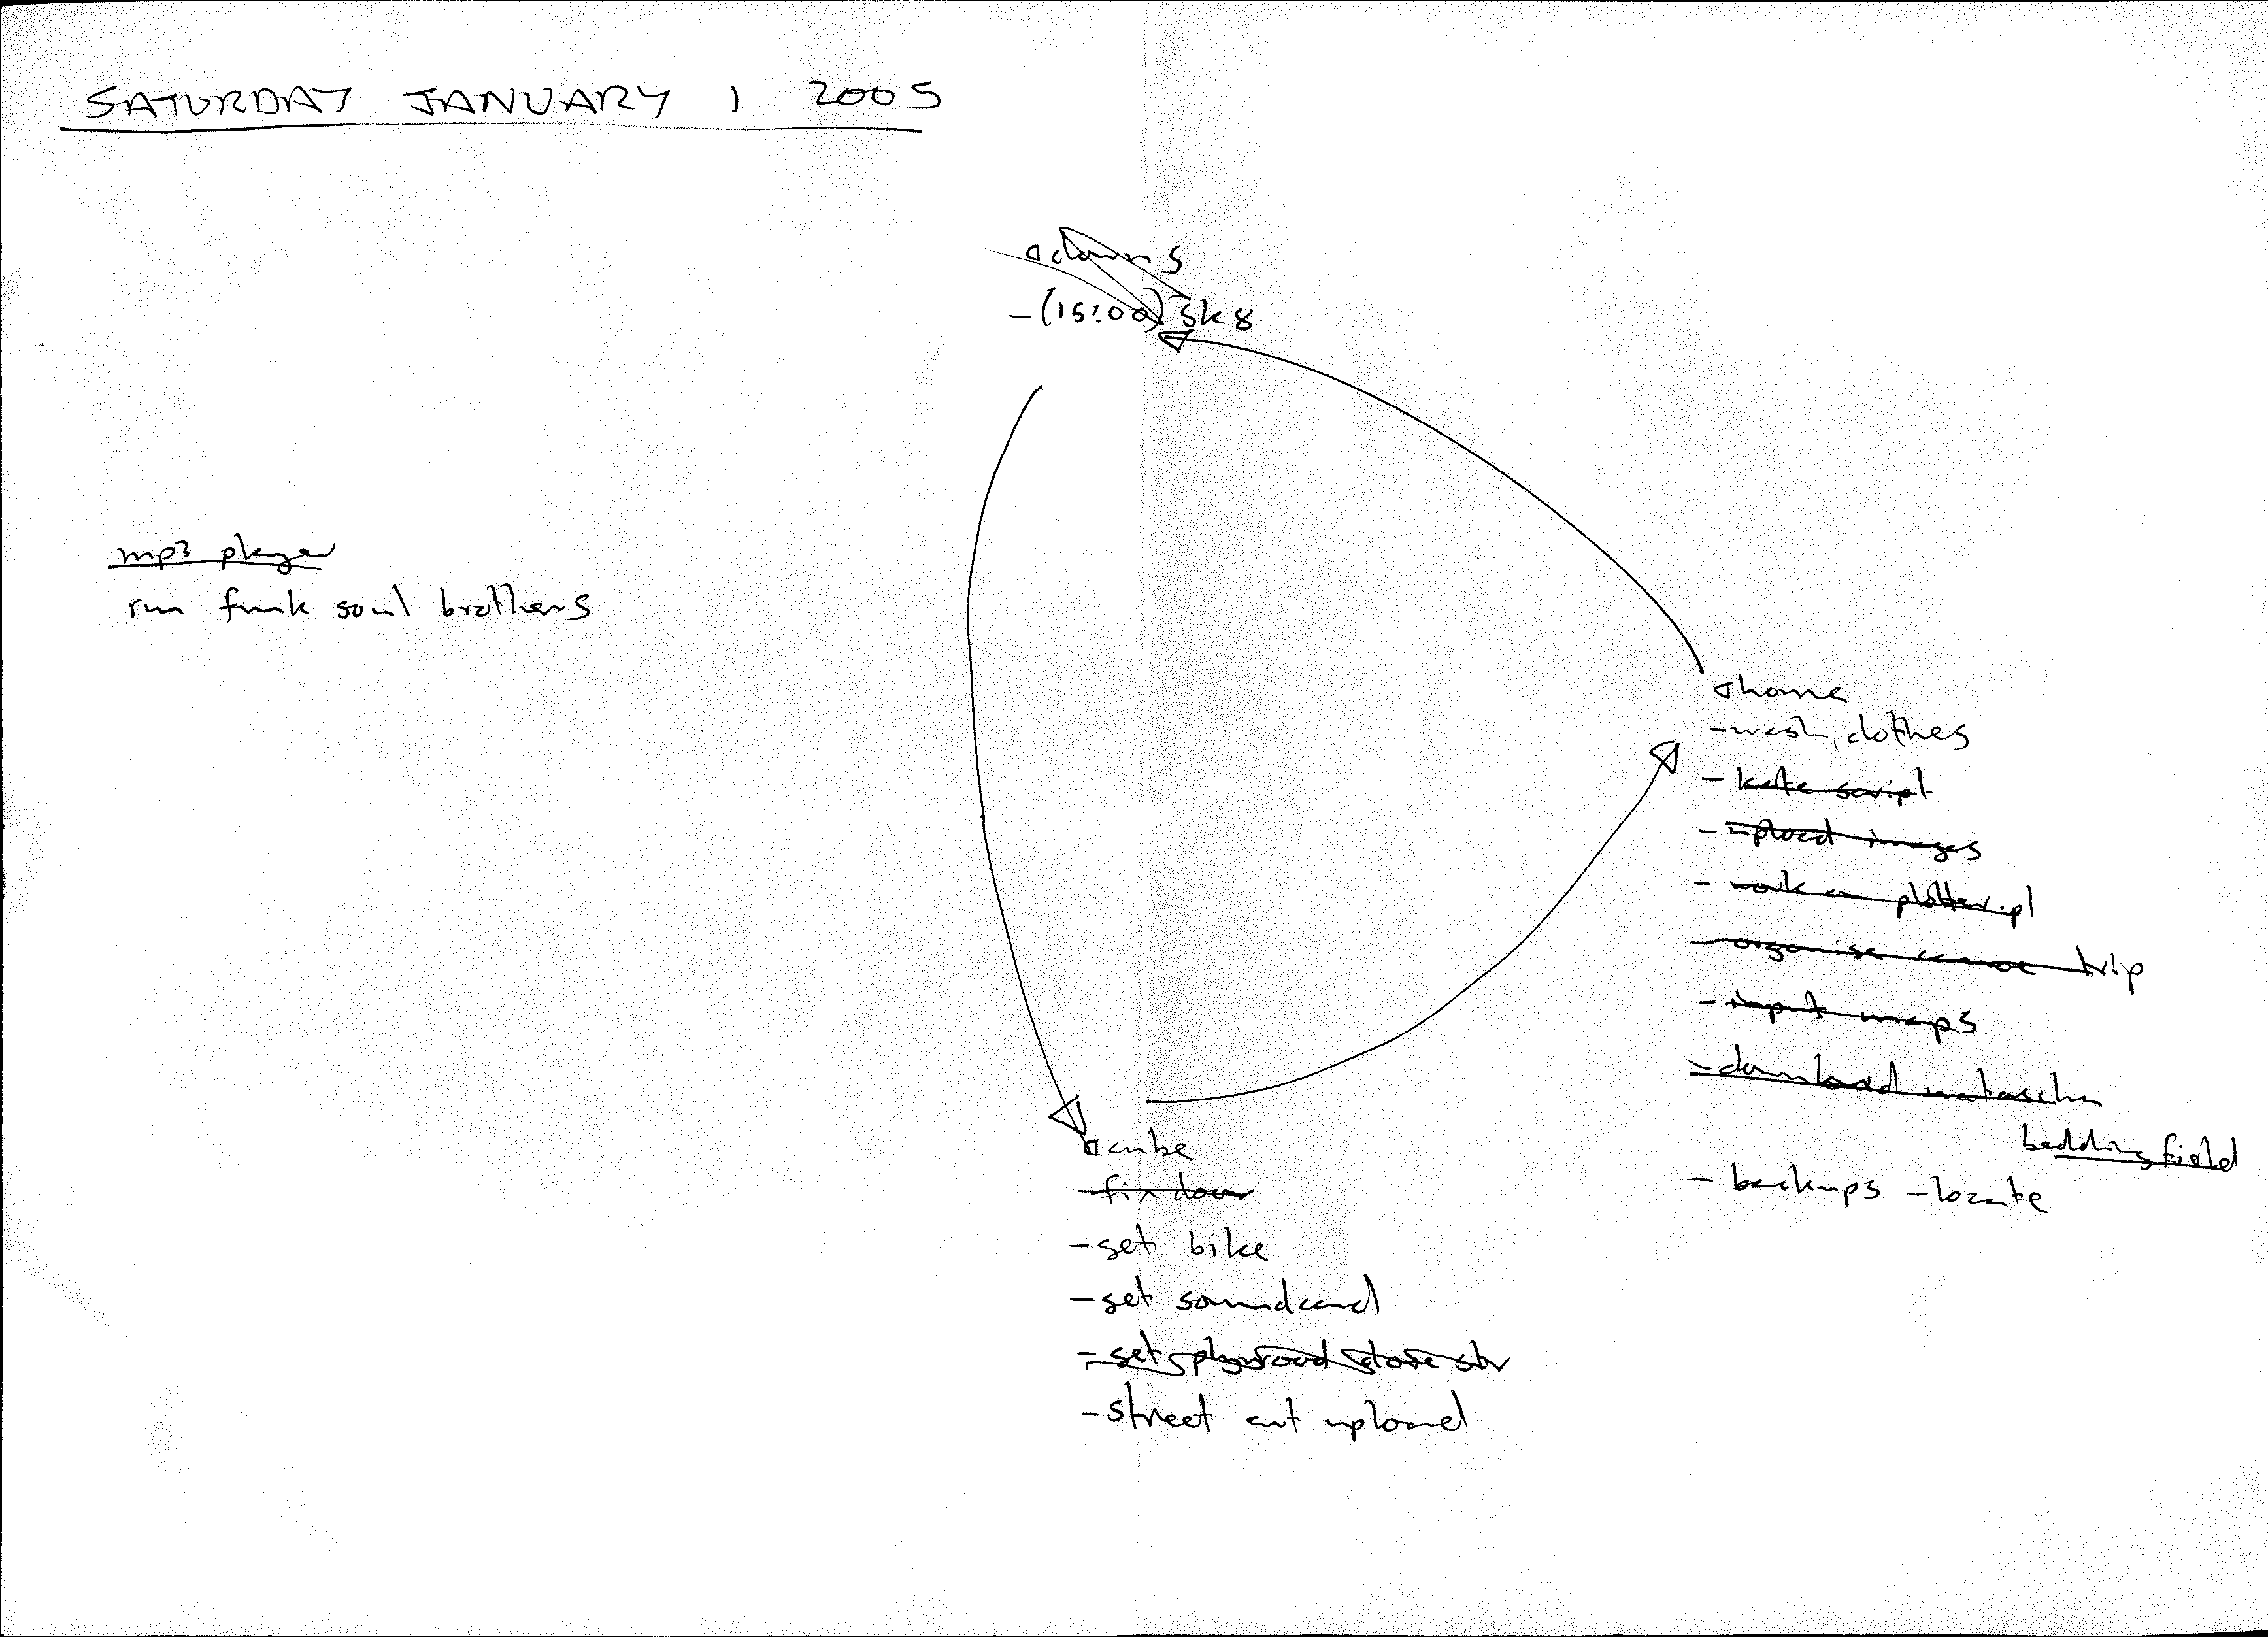 SATURDAY JANUARY 1 2005
downs
-(15:00) sk8
mp3 player
run funk soul brothers
home
-wash clothes
- kate script
- upload images
- work on plotter.pl
- organise canoe trip
- input maps
- download natascha
beddingfield
- backups - locate
cube
- fix door
- get bike
- get soundcard
- get plywood
- street art upload